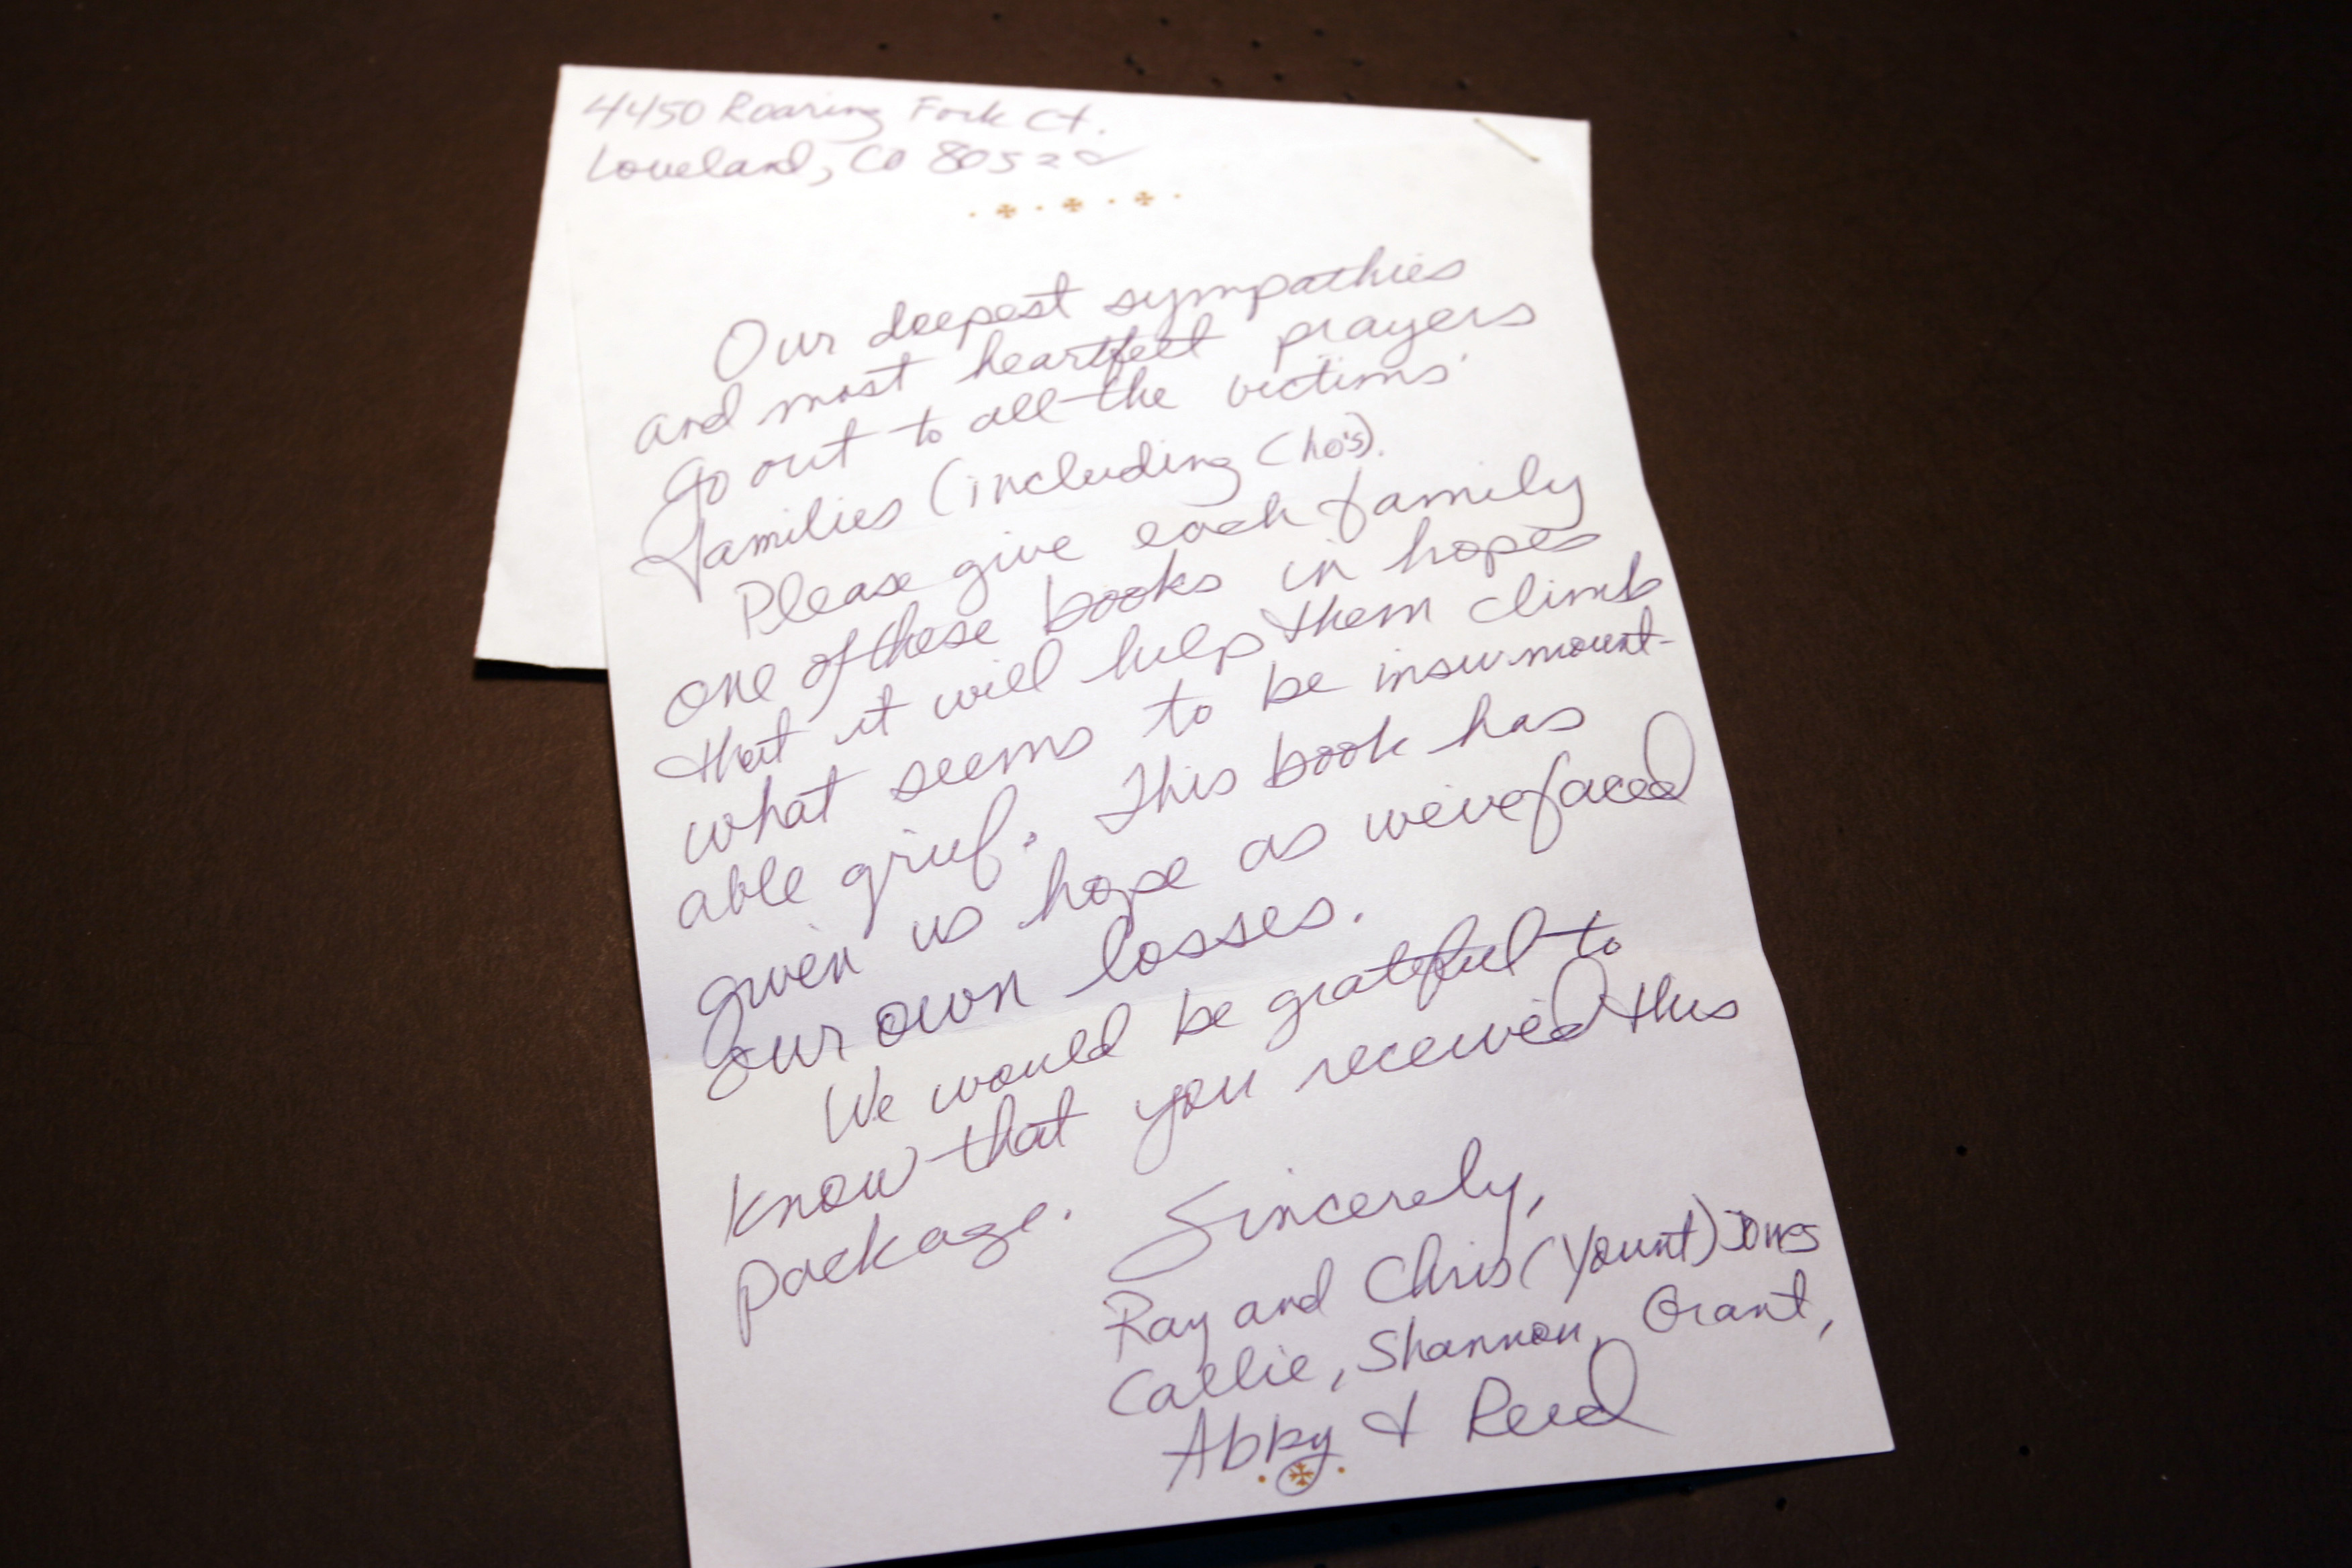 4450 Roaring Fork Ct.
Loveland, CO 80522
Our deepest sympathies
and most heartfelt prayers
go out to all the victims'
families (including Cho's).
Please give each family
one of these books in hopes
that it will help them climb
what seems to be insurmount-
able grief. This book has
given us hope as we've faced
our own losses.
We would be grateful to
know that you received this
package.
Sincerely,
Ray and Chris (Yount)
Callie, Shannon, Grant,
Abby & Reed